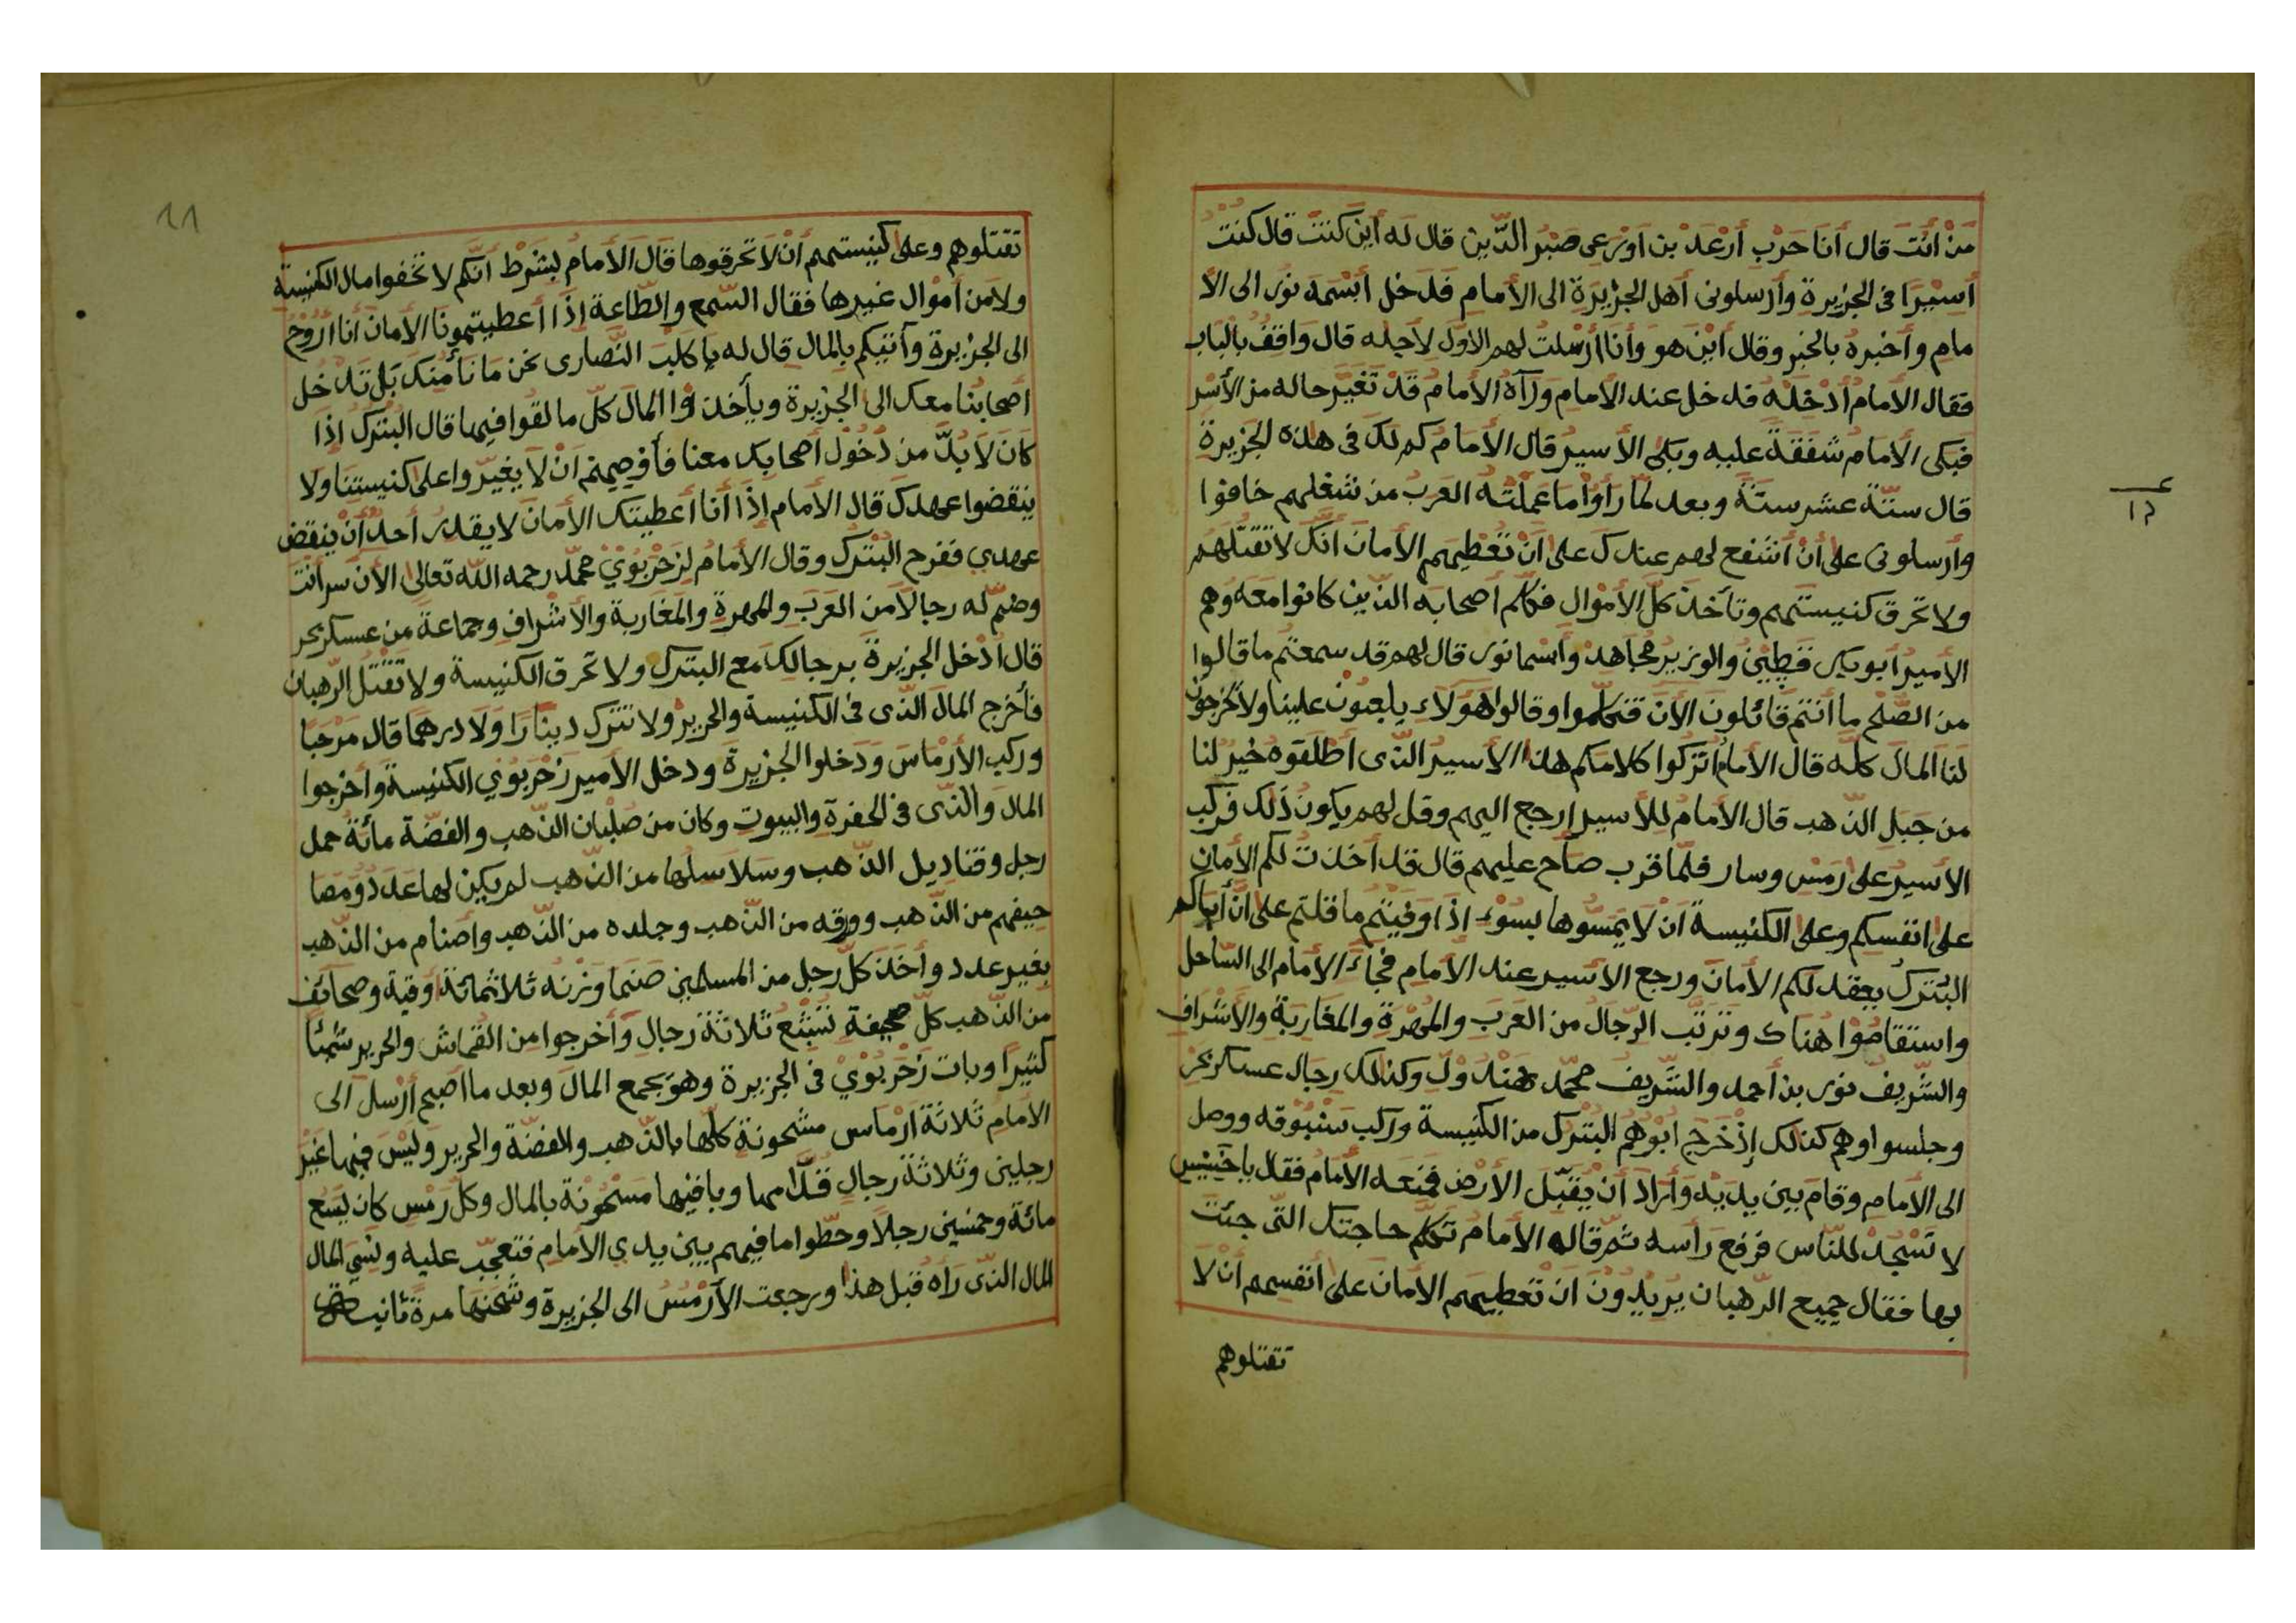 من أنت قال أنا حرب أرعد بن اورعي صبر الدين قال له أين كنت قال كنت
أسيرا في الجزيرة وأرسلوني أهل الجزيرة الى الأمام فدخل أبسمه نور الى الأ
مام وأخبره بالخبر وقال أين هو وأنا أرسلت لهم الاول لأجله قال واقف بالباب
فقال الامام أدخله فدخل عند الامام ورآه الامام قد تغير حاله من الأسر
فبكى الأمام شفقة عليه وبكى الأسير قال الأمام كم لك في هذه الجزيرة
قال ستة عشر سنة وبعد لما رأوا ما عملته العرب من شغلهم خافوا
وأرسلوني على أن أشفع لهم عندك على أن تعطيهم الأمان أنك لا تقتلهم
ولا تحرق كنيستهم وتأخذ كل الأموال فكلم أصحابه الذين كانوا معه وهم
الأمير أبو بكر قطين والوزير مجاهد وأسما نور قال لهم قد سمعتم ما قالوا
من الصلح ما أنتم قائلون الأن فتكلموا وقالوا هؤلاء يلعبون علينا ولا يخرجون
لنا المال كله قال الأمام اتركوا كلامكم هذا الأسير الذى أطلقوه خير لنا
من جبل الذهب قال الأمام للأسير إرجع اليهم وقل لهم يكون ذلك فركب
الأسير على رمس وسار فلما قرب صاح عليهم قال قد أخذت لكم الأمان
على انفسكم وعلى الكنيسة ان لا يمسوها بسوء اذا وفيتم ما قلتم على أن أباكم
البترك يعقد لكم الأمان ورجع الأسير عند الأمام فجاء الأمام الى الساحل
واستقاموا هناك وترتب الرجال من العرب والمهرة والمغاربة والأشراف
والشريف نور بن أحمد والشريف محمد هندول وكذلك رجال عساكر بحر
وجلسوا وهم كذلك إذ خرج ابوهم البترك من الكنيسة وركب سنبوقه ووصل
الى الأمام وقام بين يديه وأراد أن يقبل الأرض فمنعه الأمام فقال يا خسيس
لا تسجد للناس فرفع رأسه ثم قال له الامام تكلم حاجتك التى جئت
بها فقال جميع الرهبان يريدون ان تعطيهم الامان على أنفسهم أن لا
تقتلوهم
١١
تقتلوهم وعلى كنيستهم أن لا تحرقوها قال الأمام بشرط أنكم لا تخفوا مال الكنيسة
ولا من أموال غيرها فقال السمع والطاعة إذا أعطيتمونا الأمان أنا أروح
الى الجزيرة وآتيكم بالمال قال له يا كلب النصارى نحن ما نأمنك بل تدخل
أصحابنا معك الى الجزيرة ويأخذوا المال كل ما لقوا فيها قال البترك إذا
كان لا بد من دخول أصحابك معنا فأوصيهم أن لا يغيروا على كنيستنا ولا
ينقضوا عهدك قال الأمام إذا أنا أعطيتك الأمان لا يقدر أحد أن ينقض
عهدي ففرح البترك وقال الأمام لزحربوي محمد رحمه الله تعالى الأن سر أنت
وضم له رجالا من العرب والمهرة والمغاربة والأشراف وجماعة من عسكر بحر
قال أدخل الجزيرة برجالك مع البترك ولا تحرق الكنيسة ولا تقتل الرهبان
فأخرج المال الذى في الكنيسة والحرير ولا تترك دينارا ولا درهما قال مرحبا
وركب الأرماس ودخلوا الجزيرة ودخل الأمير زحربوي الكنيسة وأخرجوا
المال والذى في الحفرة والبيوت وكان من صلبان الذهب والفضة مائة حمل
رجل وقناديل الذهب وسلاسلها من الذهب لم يكن لها عدد ومصا
حيفهم من الذهب وورقه من الذهب وجلده من الذهب وأصنام من الذهب
بغير عدد وأخذ كل رجل من المسلمين صنما وزنه ثلاثمائة أوقية وصحائف
من الذهب كل صحيفة تشبع ثلاثة رجال وأخرجوا من القماش والحرير شيئا
كثيرا وبات زحربوي في الجزيرة وهو يجمع المال وبعد ما اصبح أرسل الى
الأمام ثلاثة أرماس مشحونة كلها بالذهب والفضة والحرير وليس فيها غير
رجلين وثلاثة رجال قدامها وباقيها مشحونة بالمال وكل رمس كان يسع
مائة وخمسين رجلا وحطوا ما فيهم بين يدي الأمام فتعجب عليه ونسي المال
المال الذى رآه قبل هذا ورجعت الأرمس الى الجزيرة وشحنها مرة ثانية